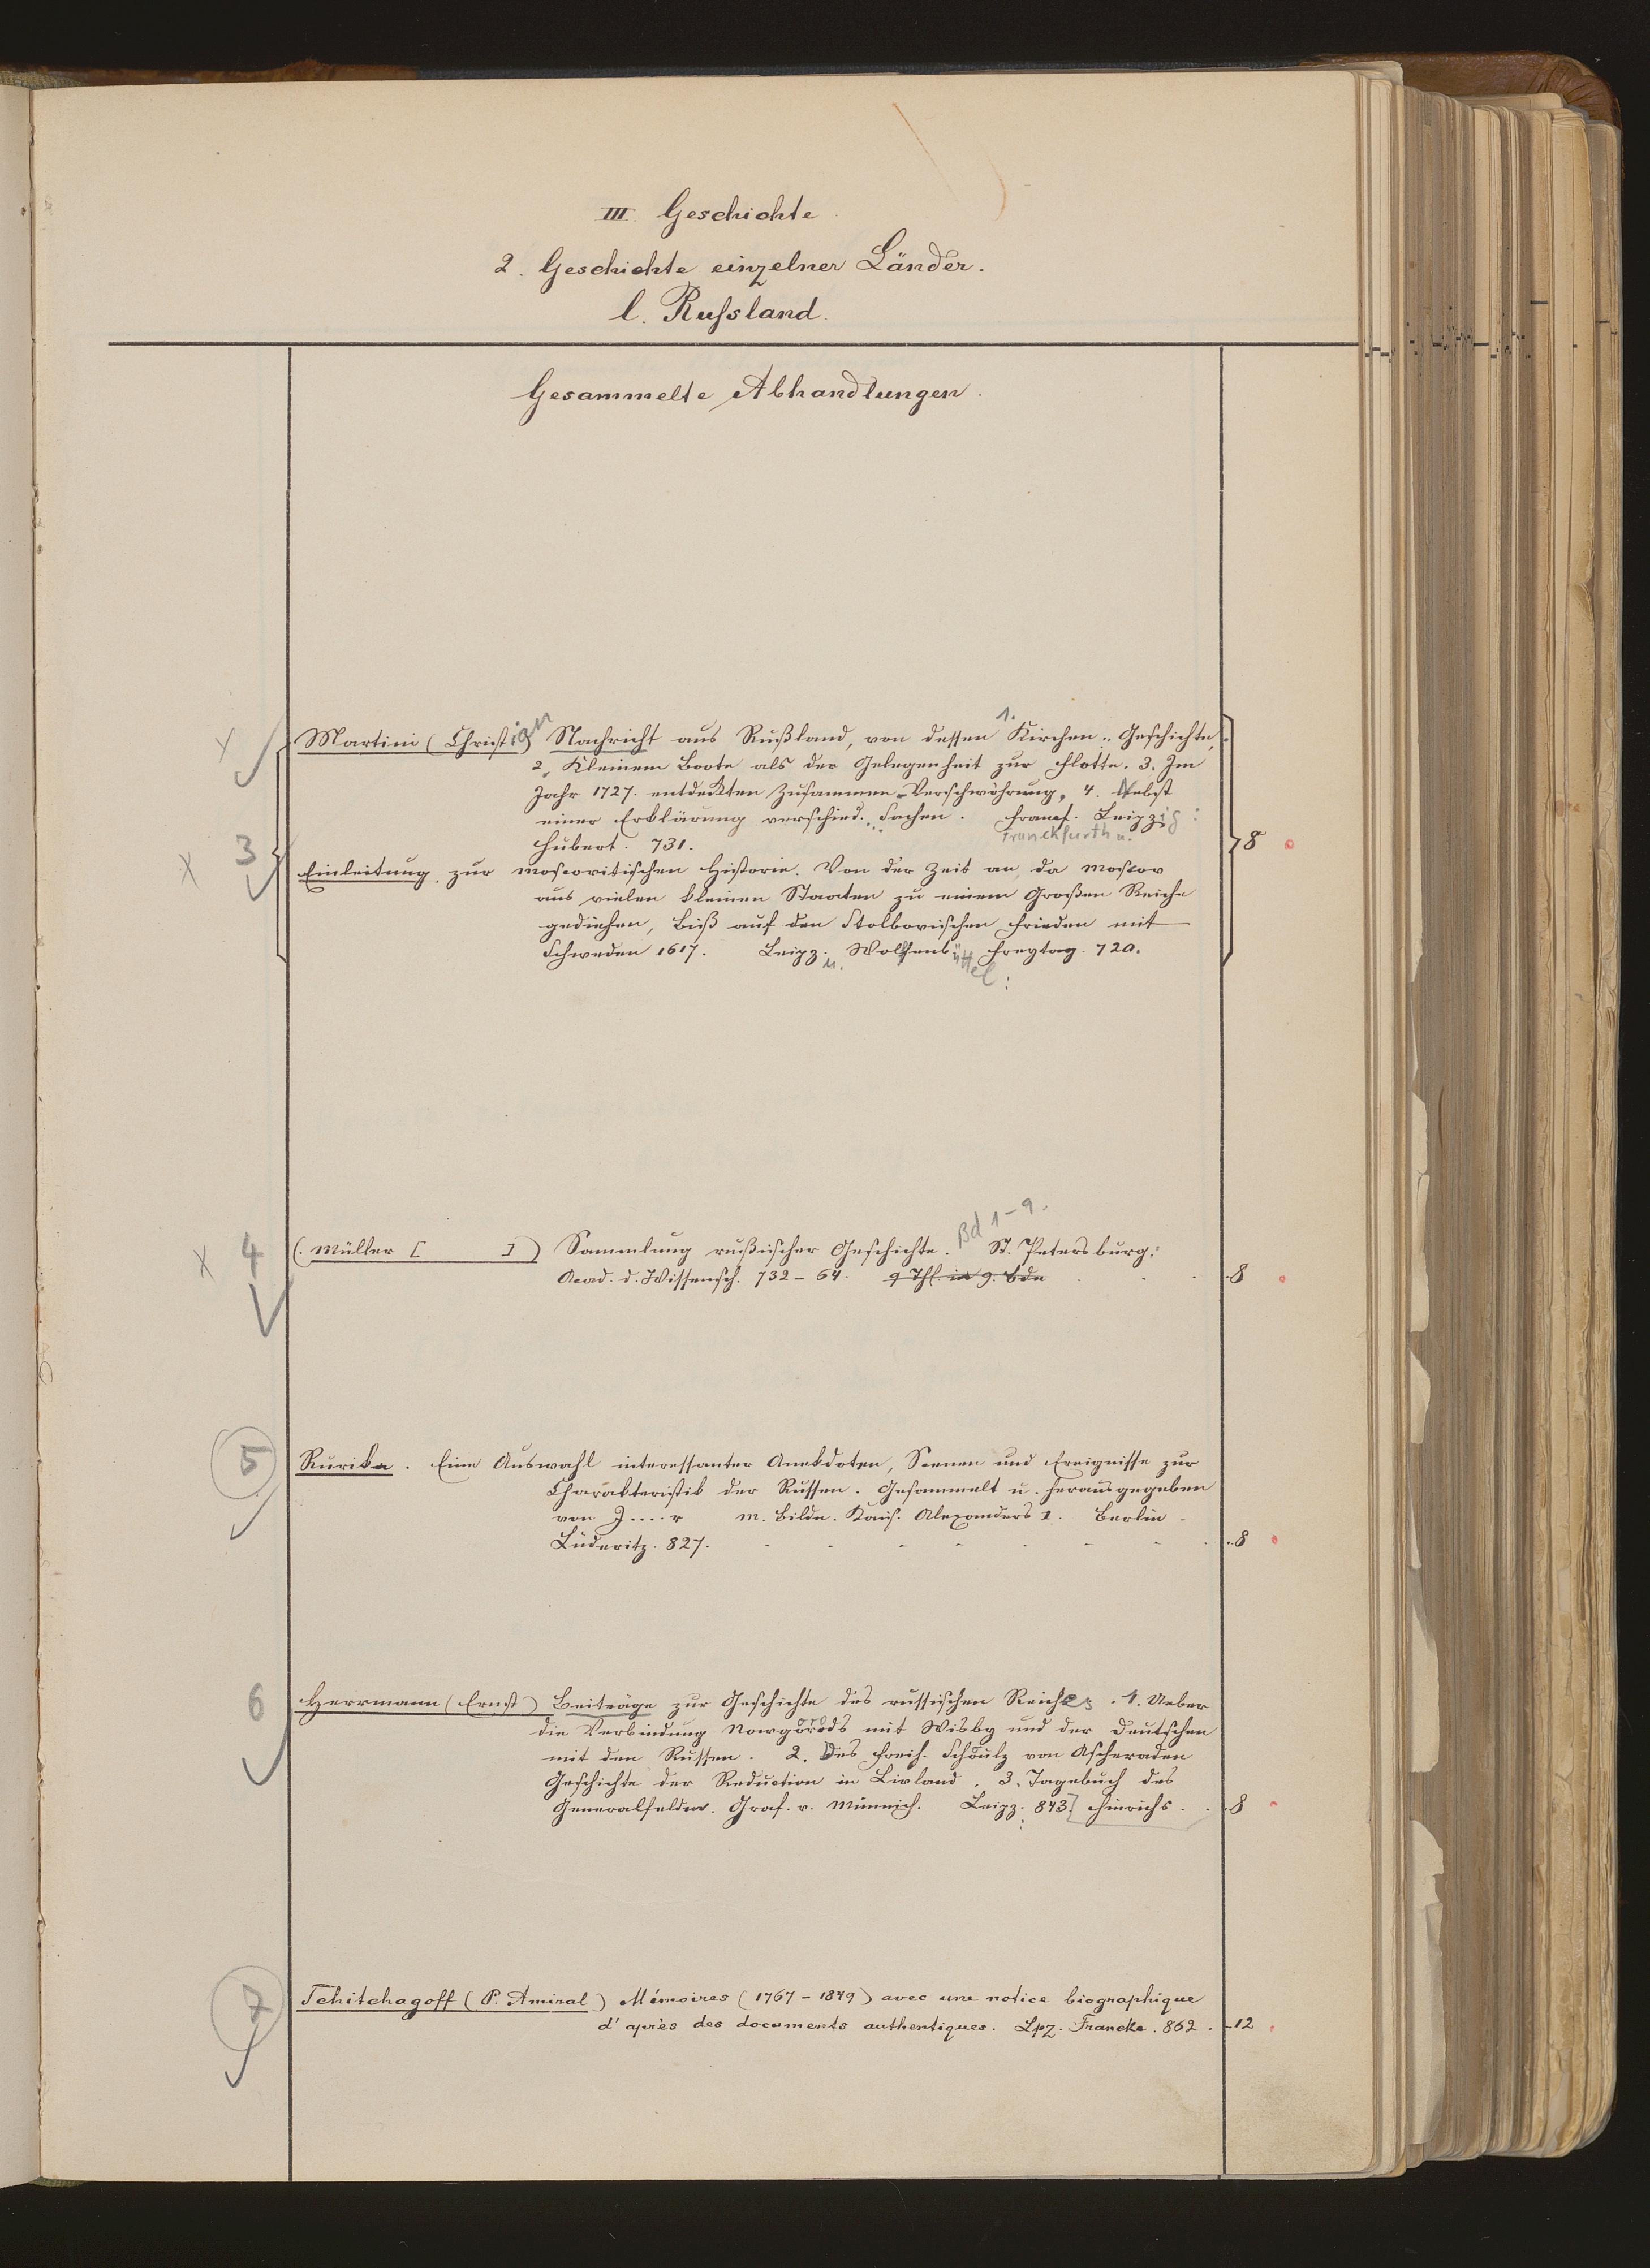 III. Geschichte.
2. Geschichte einzelner Länder.
l. Russland.
Gesammelte Abhandlungen.
Martini (Christian) Nachricht aus Rußland, von dessen 1. Kirchen-Geschichte,
2. Kleinem Boote als der Gelegenheit zur Flotte. 3. Im
Jahr 1727. entdeckten Zusammen-Verschwöhrung, 4. Nebst
einer Erklärung verschied. Sachen. Francf. Leipzig:
Franckfurth u.
Hubert. 731.
3
8
Einleitung zur moscovitischen Historie. Von der Zeit an, da Moscov
aus vielen kleinen Staaten zu einem Großen Reiche
gediehen, Biß auf den Stolbovischen Frieden mit
Schweden 1617. Leipz. u. Wolfenbüttel: Freytag. 720.
4
(Müller [ ]) Sammlung rußischer Geschichte. Bd 1-9. St. Petersburg:
Acad. d. Wissensch. 732-64. 9 Thl. in 9. Bde . . . 8
5
Rurika. Eine Auswahl interessanter Anekdoten, Scenen und Ereignisse zur
Charakteristik der Russen. Gesammelt u. herausgegeben
von J....r m. Bildn. Kais. Alexanders I. Berlin.
Lüderitz. 827. - - - - - - - . . 8
6
Herrmann (Ernst) Beiträge zur Geschichte des russischen Reiches. 1. Ueber
die Verbindung Nowgorods mit Wisby und der Deutschen
mit den Russen. 2. Des Freih. Schoulz von Ascheraden
Geschichte der Reduction in Livland. 3. Tagebuch des
Generalfeldm. Graf. v. Münnich. Leipz.: 843. Hinrichs. . 8
7
Tchitchagoff (P. Amiral) Mémoires (1767-1849) avec une notice biographique
d'après des documents authentiques. Lpz. Francke. 862. - 12